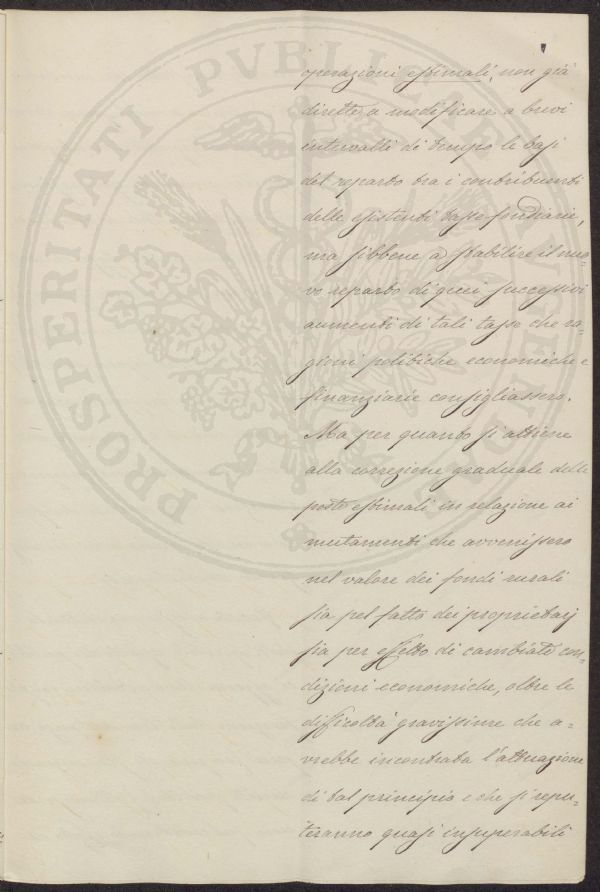 operazioni estimali, non già
dirette a modificare a brevi
intervalli di tempo le basi
del reparto tra i contribuenti
delle esistenti tasse fondiarie,
ma sibbene a stabilire il nuo-
vo reparto di quei successivi
aumenti di tali tasse che ra-
gioni politiche economiche e
finanziarie consigliassero.
Ma per quanto si attiene
alla correzione graduale delle
poste estimali in relazione ai
mutamenti che avvenissero
nel valore dei fondi rurali
sia pel fatto dei proprietarj
sia per effetto di cambiate con-
dizioni economiche, oltre le
difficoltà gravissime che a-
vrebbe incontrata l'attuazione
di tal principio e che si repu-
teranno quasi insuperabili
PROSPERITATI PVBLICAE AVGENDAE